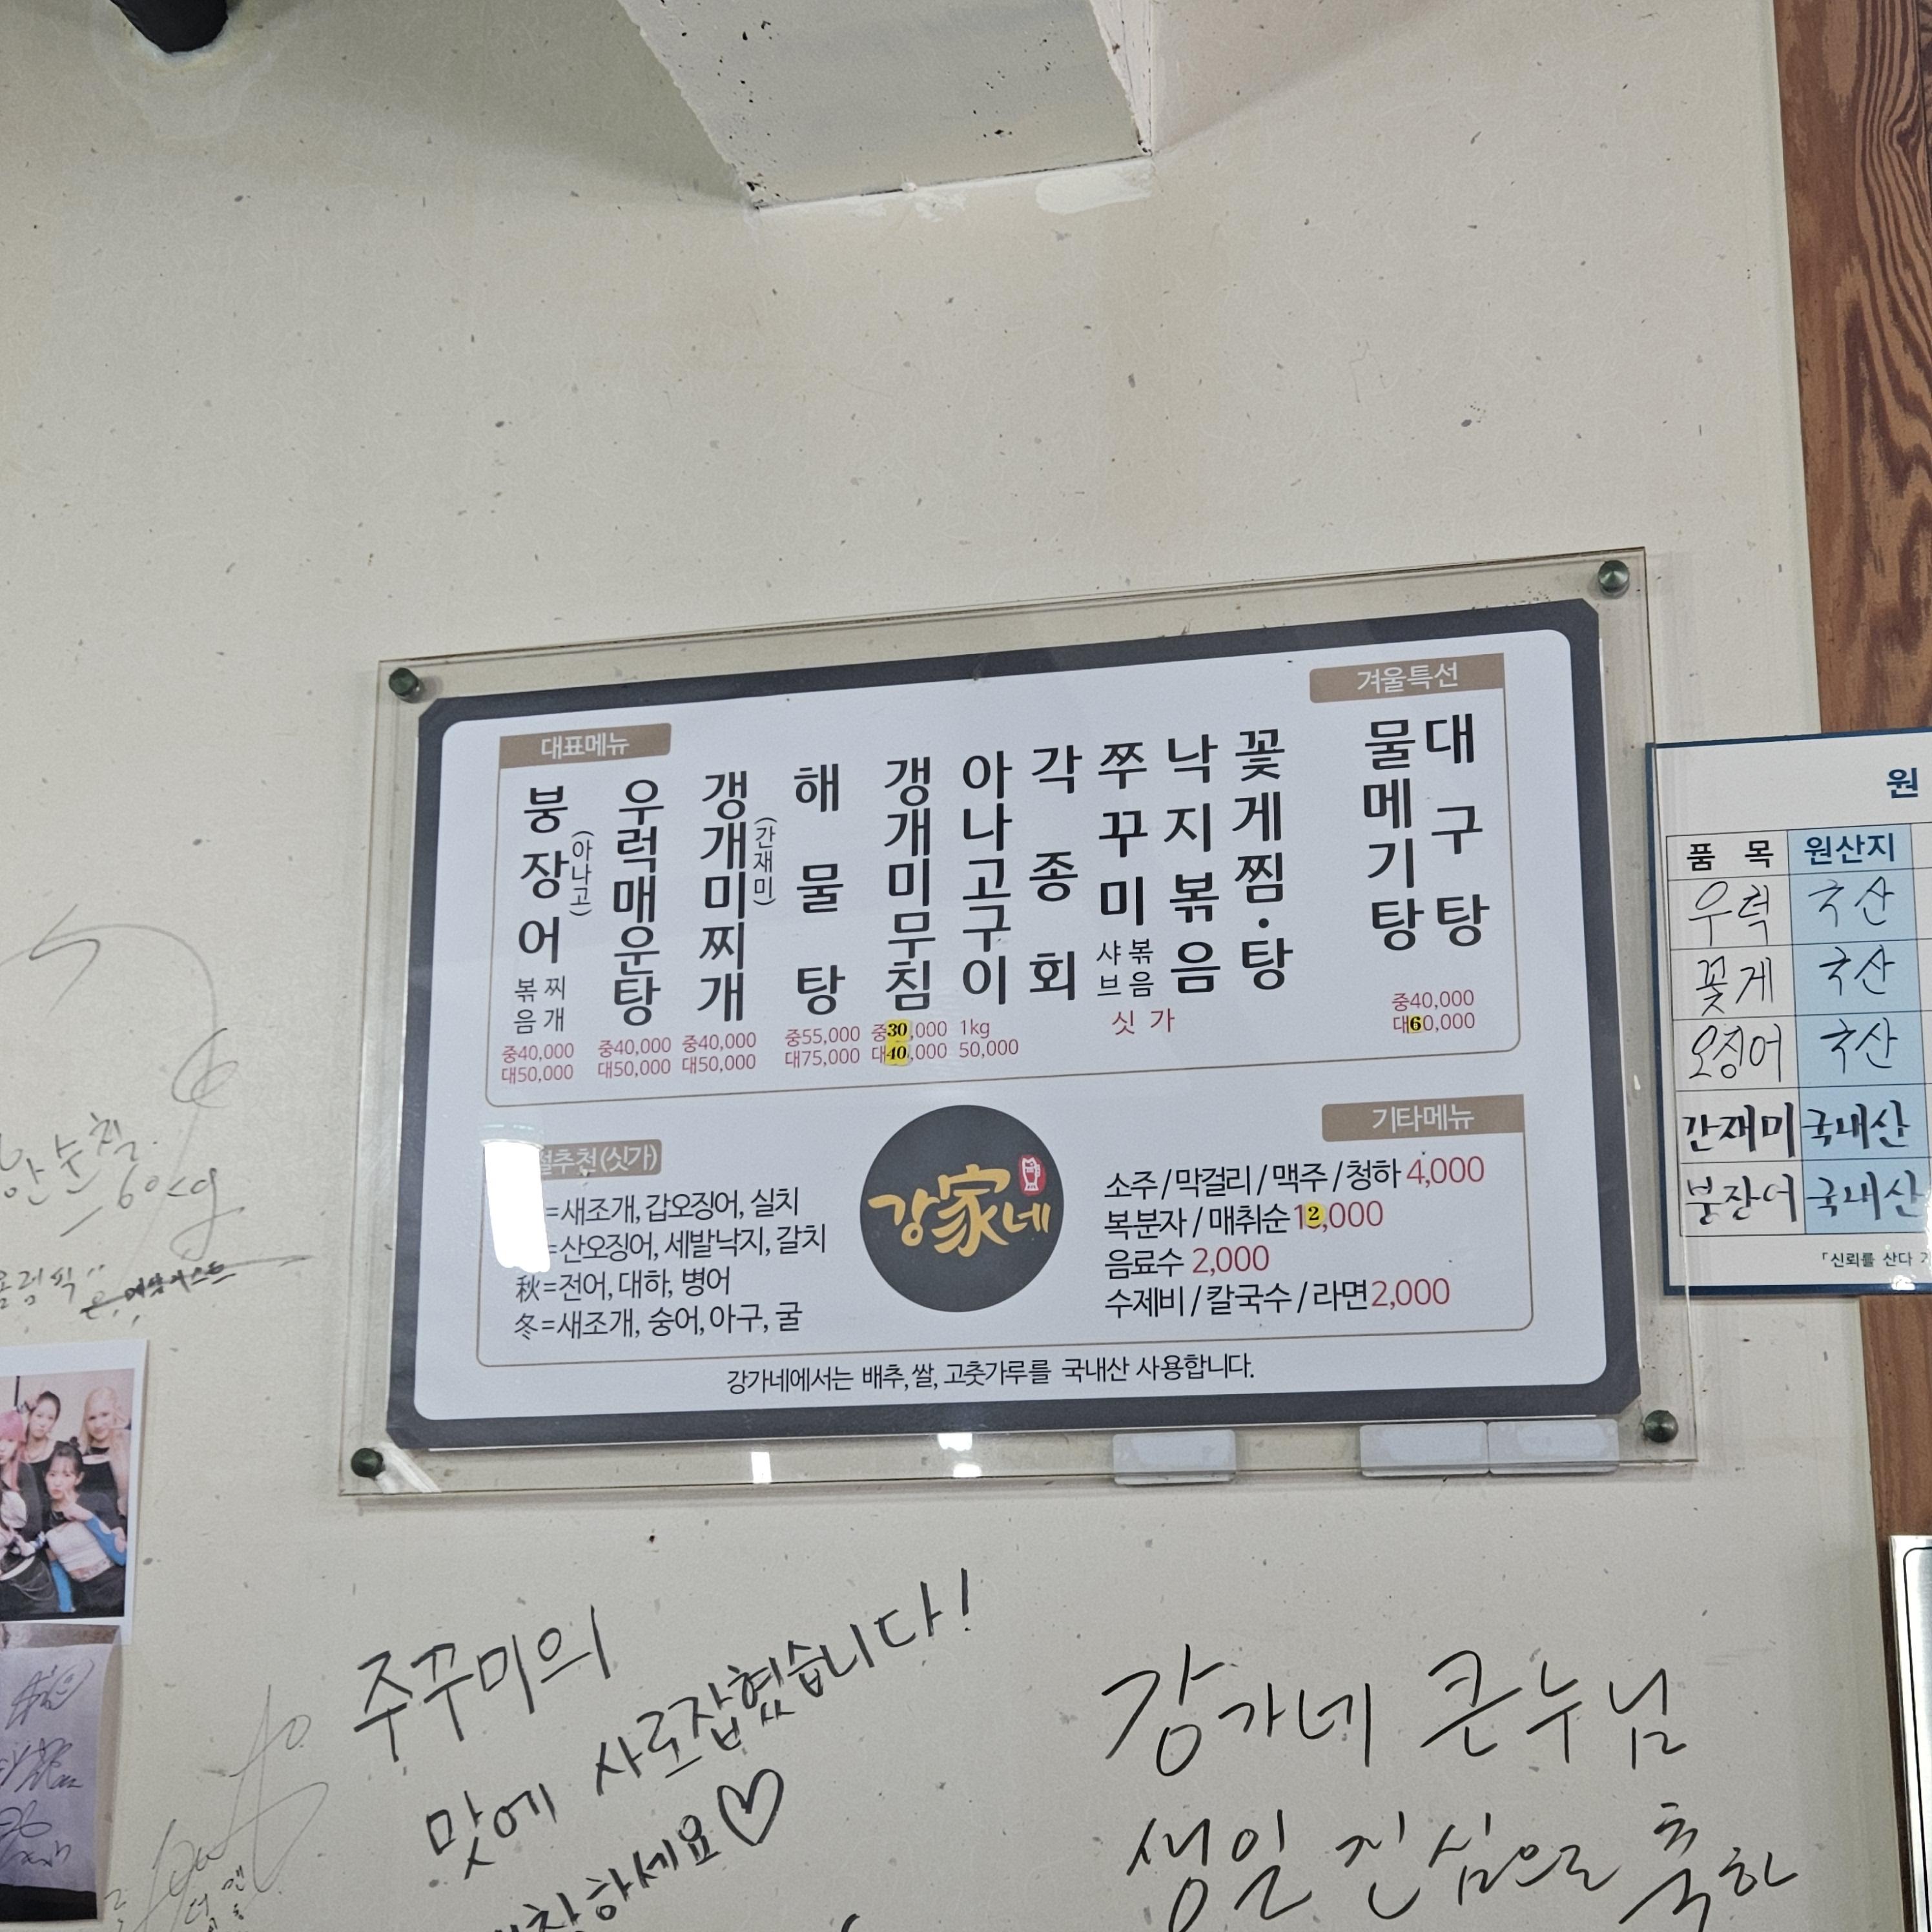 대표메뉴
붕장어(아나고) 볶음 찌개
중40,000
대50,000
우럭매운탕
중40,000
대50,000
갱개미(간재미)찌개
중40,000
대50,000
해물탕
중55,000
대75,000
갱개미무침
중30,000
대40,000
아나고구이
1kg
50,000
각종회
쭈꾸미 샤브 볶음
낙지볶음
꽃게찜·탕
싯가
겨울특선
물메기탕
대구탕
중40,000
대60,000
절추천(싯가)
=새조개, 갑오징어, 실치
=산오징어, 세발낙지, 갈치
秋=전어, 대하, 병어
冬=새조개, 숭어, 아구, 굴
강家네
기타메뉴
소주/막걸리/맥주/청하 4,000
복분자/매취순 12,000
음료수 2,000
수제비/칼국수/라면 2,000
강가네에서는 배추, 쌀, 고춧가루를 국내산 사용합니다.
원
품 목 원산지
우럭 국산
꽃게 국산
오징어 국산
간재미 국내산
붕장어 국내산
「신뢰를 산다
60kg
주꾸미의
맛에 사로잡혔습니다!
하세요♡
강가네 큰누님
생일 진심으로 축하